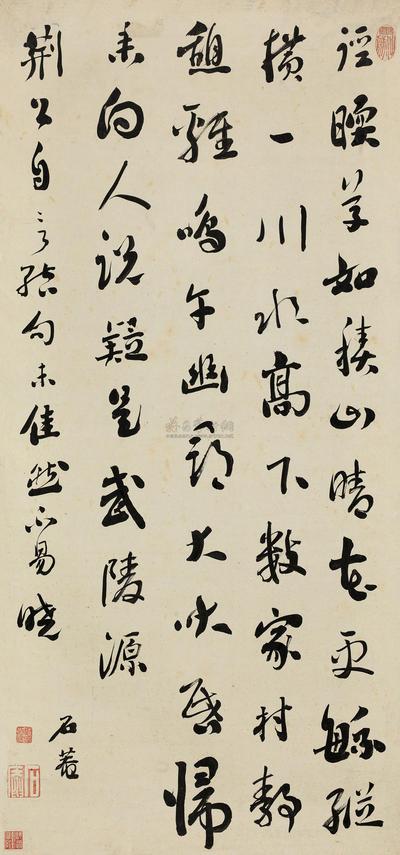 徑暖草如積山晴花更緐縱
橫一川水高下數家村靜
憩雞鳴午幽尋犬吠昏歸
来向人說疑是武陵源
荊公自言結句未佳然不易曉
石菴